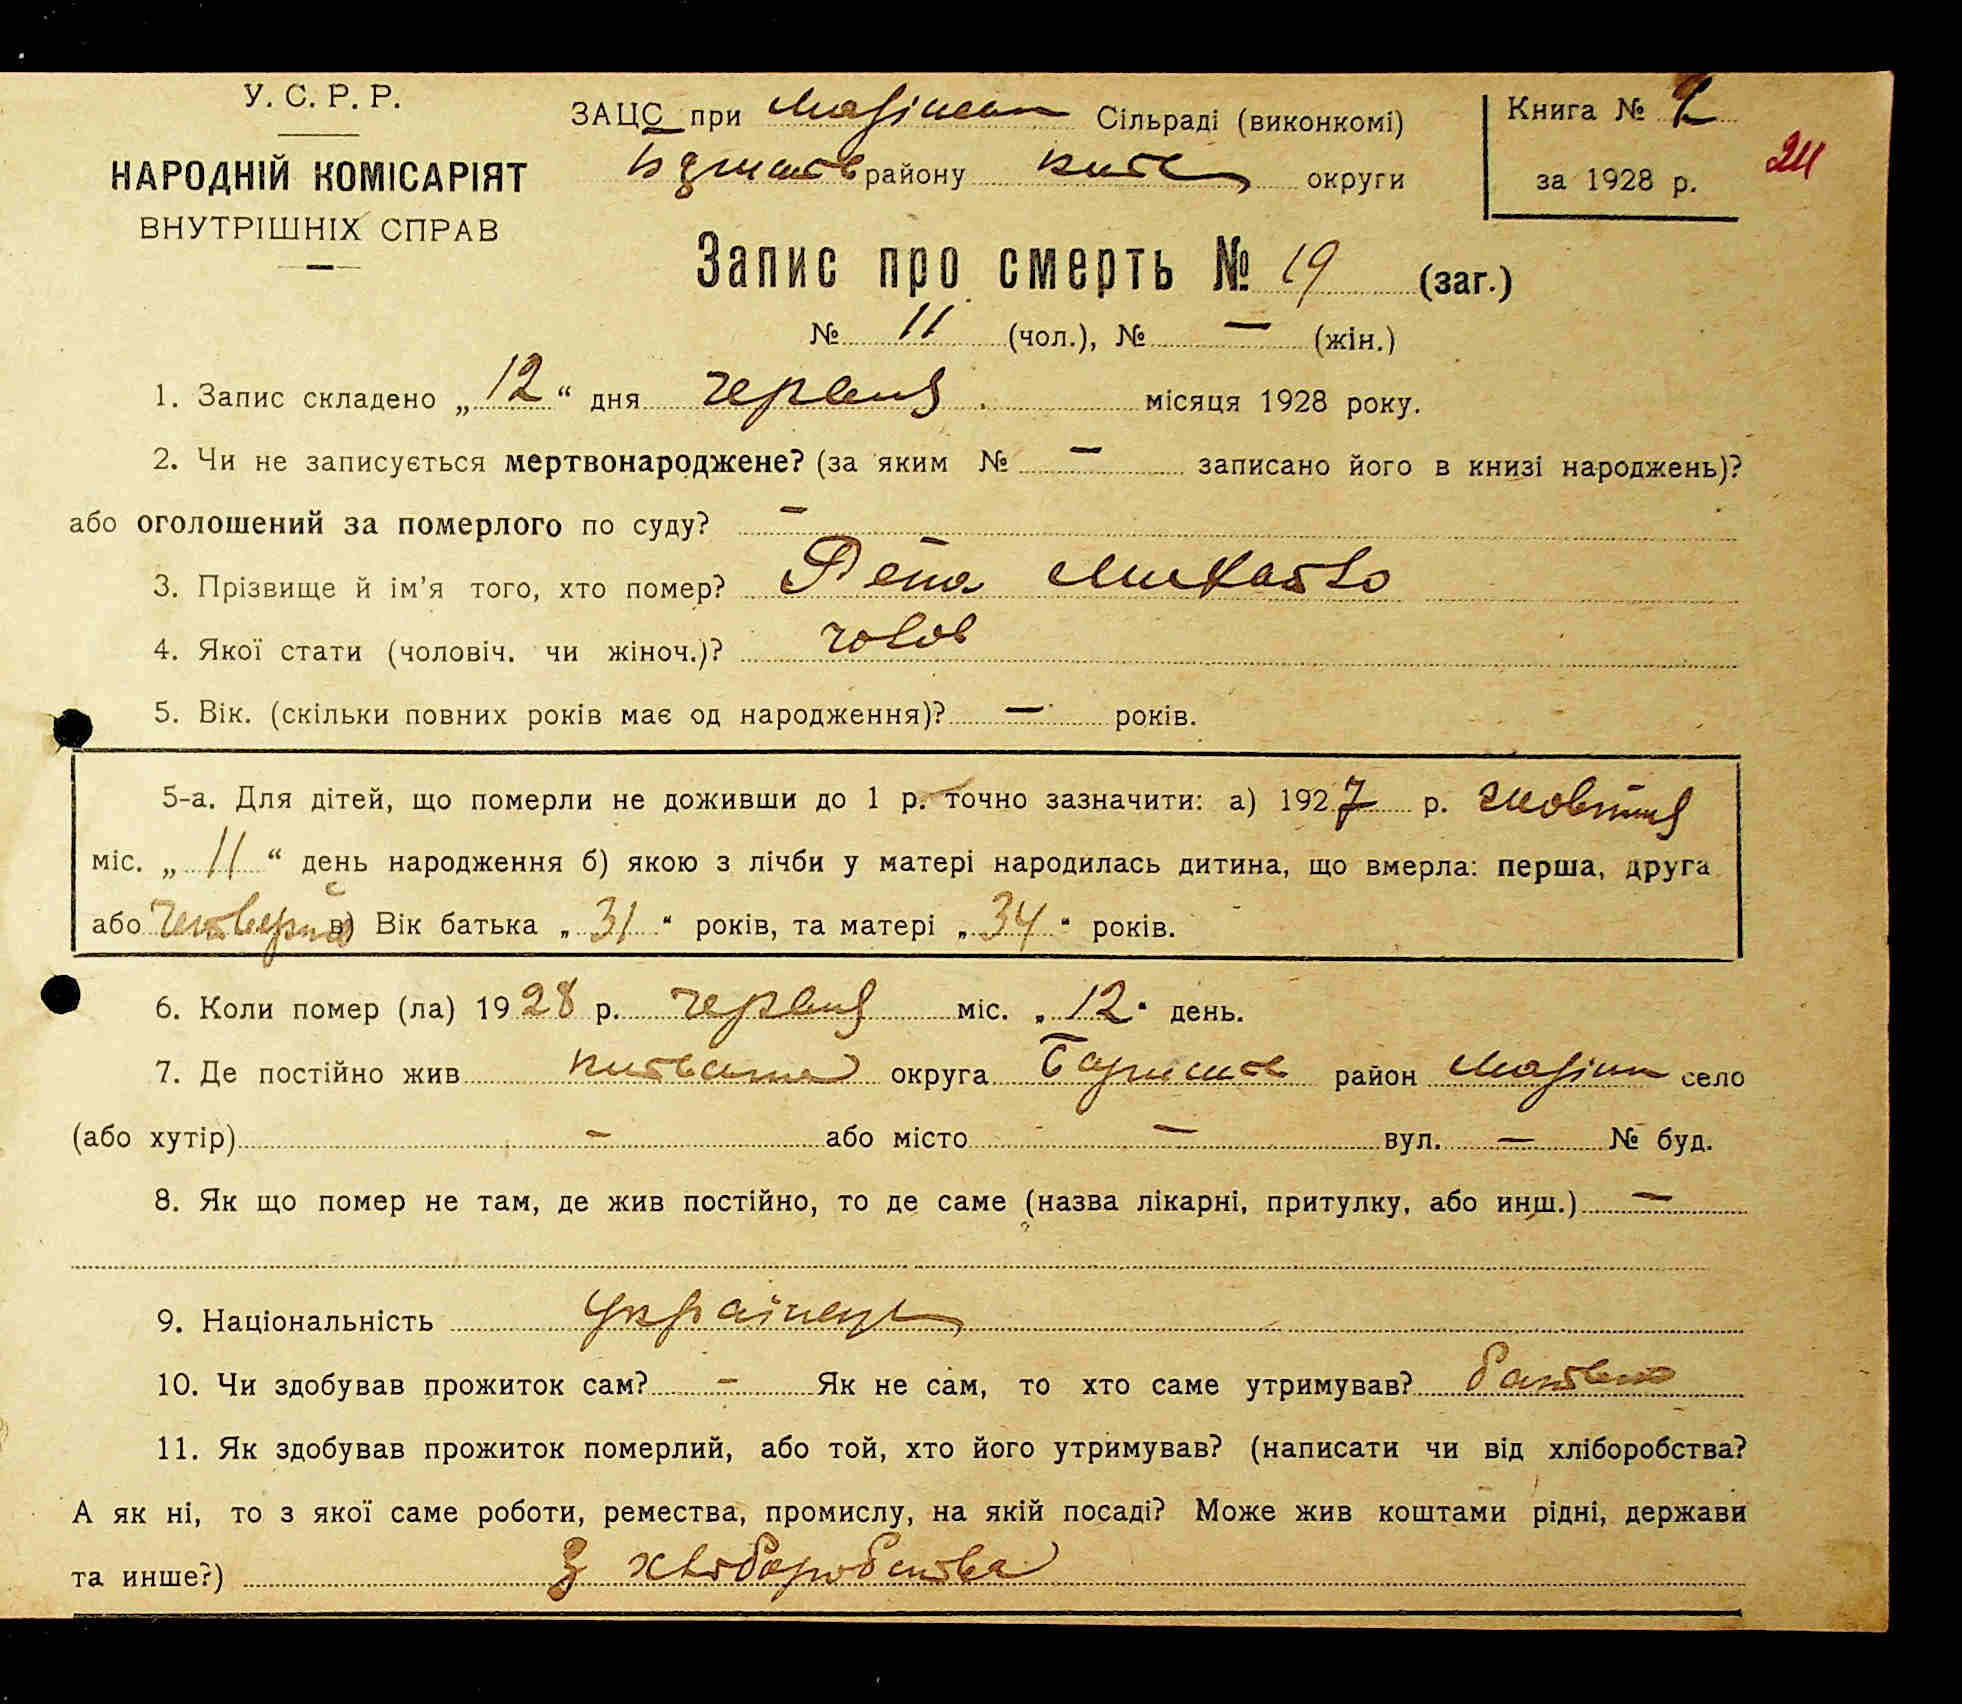 У. С. Р. Р.
НАРОДНІЙ КОМІСАРІЯТ
ВНУТРІШНІХ СПРАВ
ЗАЦС при Сільраді (виконкомі)
району округи
Книга № 2
за 1928 р.
24
Запис про смерть № 19 (заг.)
№ 11 (чол.), № — (жін.)
1. Запис складено „12“ дня червня місяця 1928 року.
2. Чи не записується мертвонароджене? (за яким № — записано його в книзі народжень)?
або оголошений за померлого по суду? —
3. Прізвище й ім’я того, хто помер? Михайло
4. Якої стати (чоловіч. чи жіноч.)? чолов
5. Вік. (скільки повних років має од народження)? — років.
5-а. Для дітей, що померли не доживши до 1 р. точно зазначити: а) 1927 р. жовтня
міс. „11“ день народження б) якою з лічби у матері народилась дитина, що вмерла: перша, друга
або четверта в) Вік батька „31“ років, та матері „34“ років.
6. Коли помер (ла) 1928 р. червня міс. „12“ день.
7. Де постійно жив округа район село
(або хутір) — або місто — вул. — № буд.
8. Як що помер не там, де жив постійно, то де саме (назва лікарні, притулку, або инш.) —
9. Національність українець
10. Чи здобував прожиток сам? — Як не сам, то хто саме утримував? батько
11. Як здобував прожиток померлий, або той, хто його утримував? (написати чи від хліборобства?
А як ні, то з якої саме роботи, ремества, промислу, на якій посаді? Може жив коштами рідні, держави
та инше?) З хліборобства